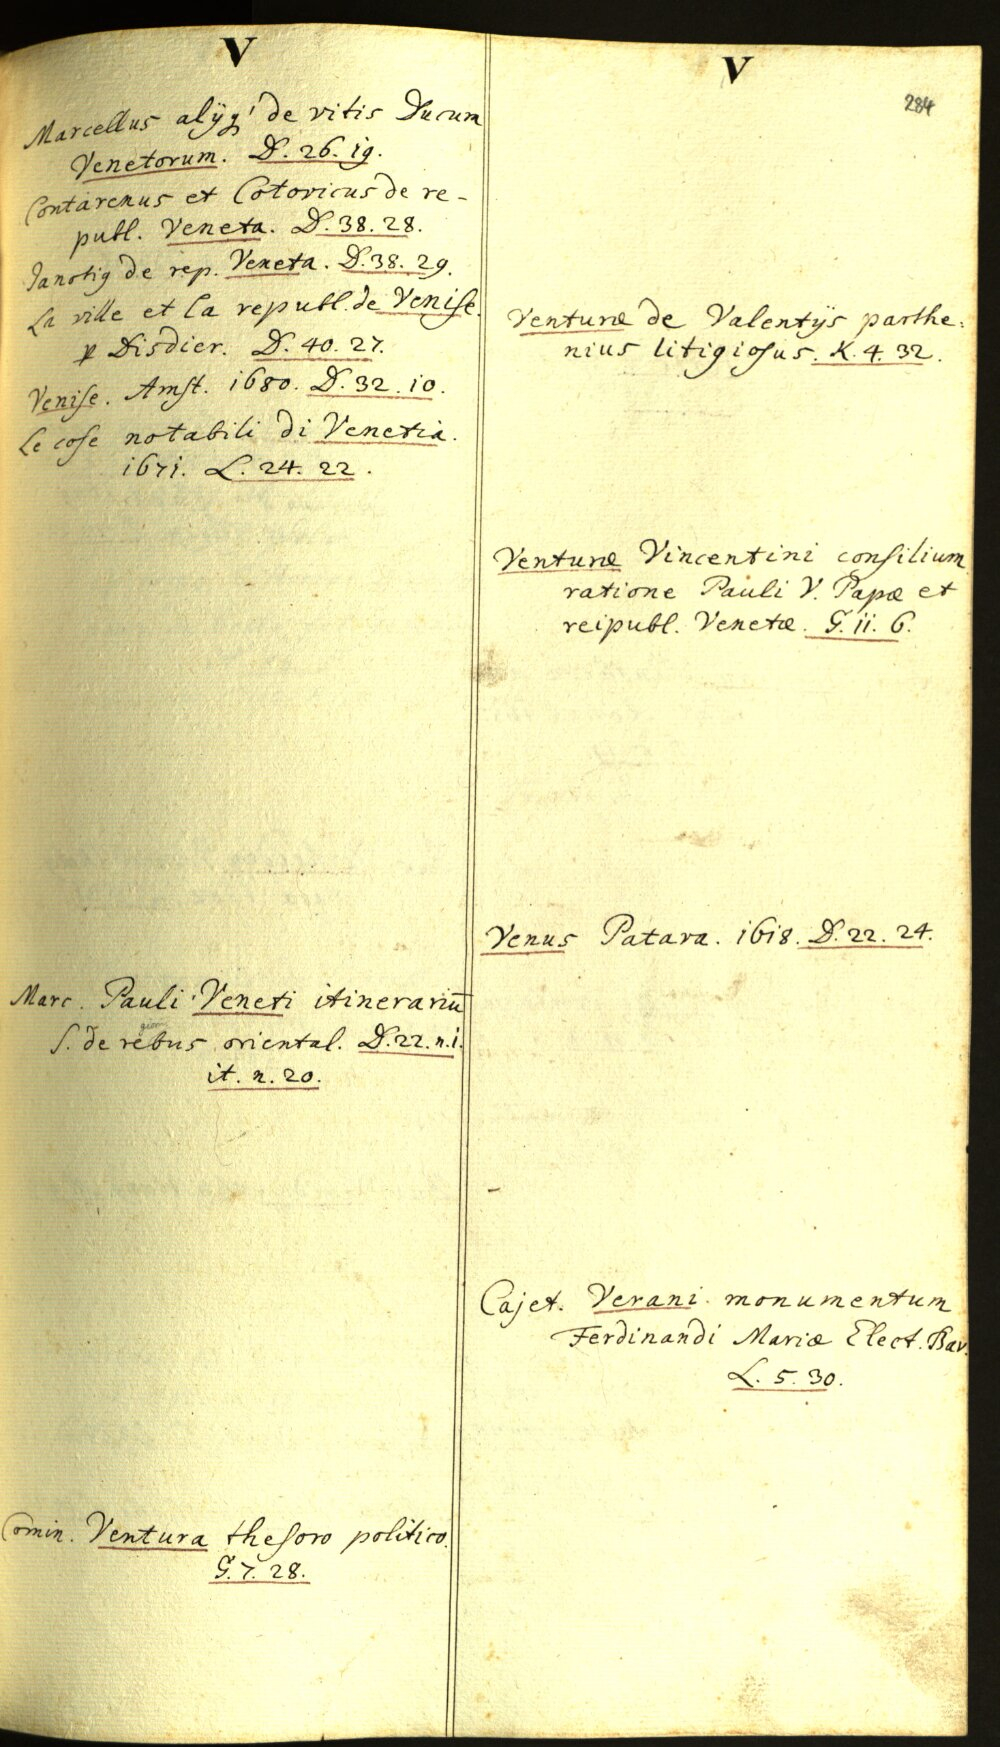 V
Marcellus alijq' de vitis Ducum
Venetorum. D. 26. 19.
Contarenus et Cotovicus de re-
publ. Veneta. D. 38. 28.
Janotig de rep. Veneta. D. 38. 29.
La ville et la republ. de Venise.
p Disdier. D. 40. 27.
Venise. Amst. 1680. D. 32. 10.
Le cose notabili di Venetia.
1671. L. 24. 22.
Marc. Pauli Veneti itinerariū
s. de rebus oriental. D. 22. n. 1.
it. n. 20.
Comin. Ventura thesoro politico.
G. 7. 28.
V
284
Venturæ de Valentijs parthe:
nius litigiosus. K. 4. 32.
Venturæ Vincentini consilium
ratione Pauli V. Papæ et
reipubl. Venetæ. G. 11. 6.
Venus Patara. 1618. D. 22. 24.
Cajet. Verani monumentum
Ferdinandi Mariæ Elect. Bav.
L. 5. 30.